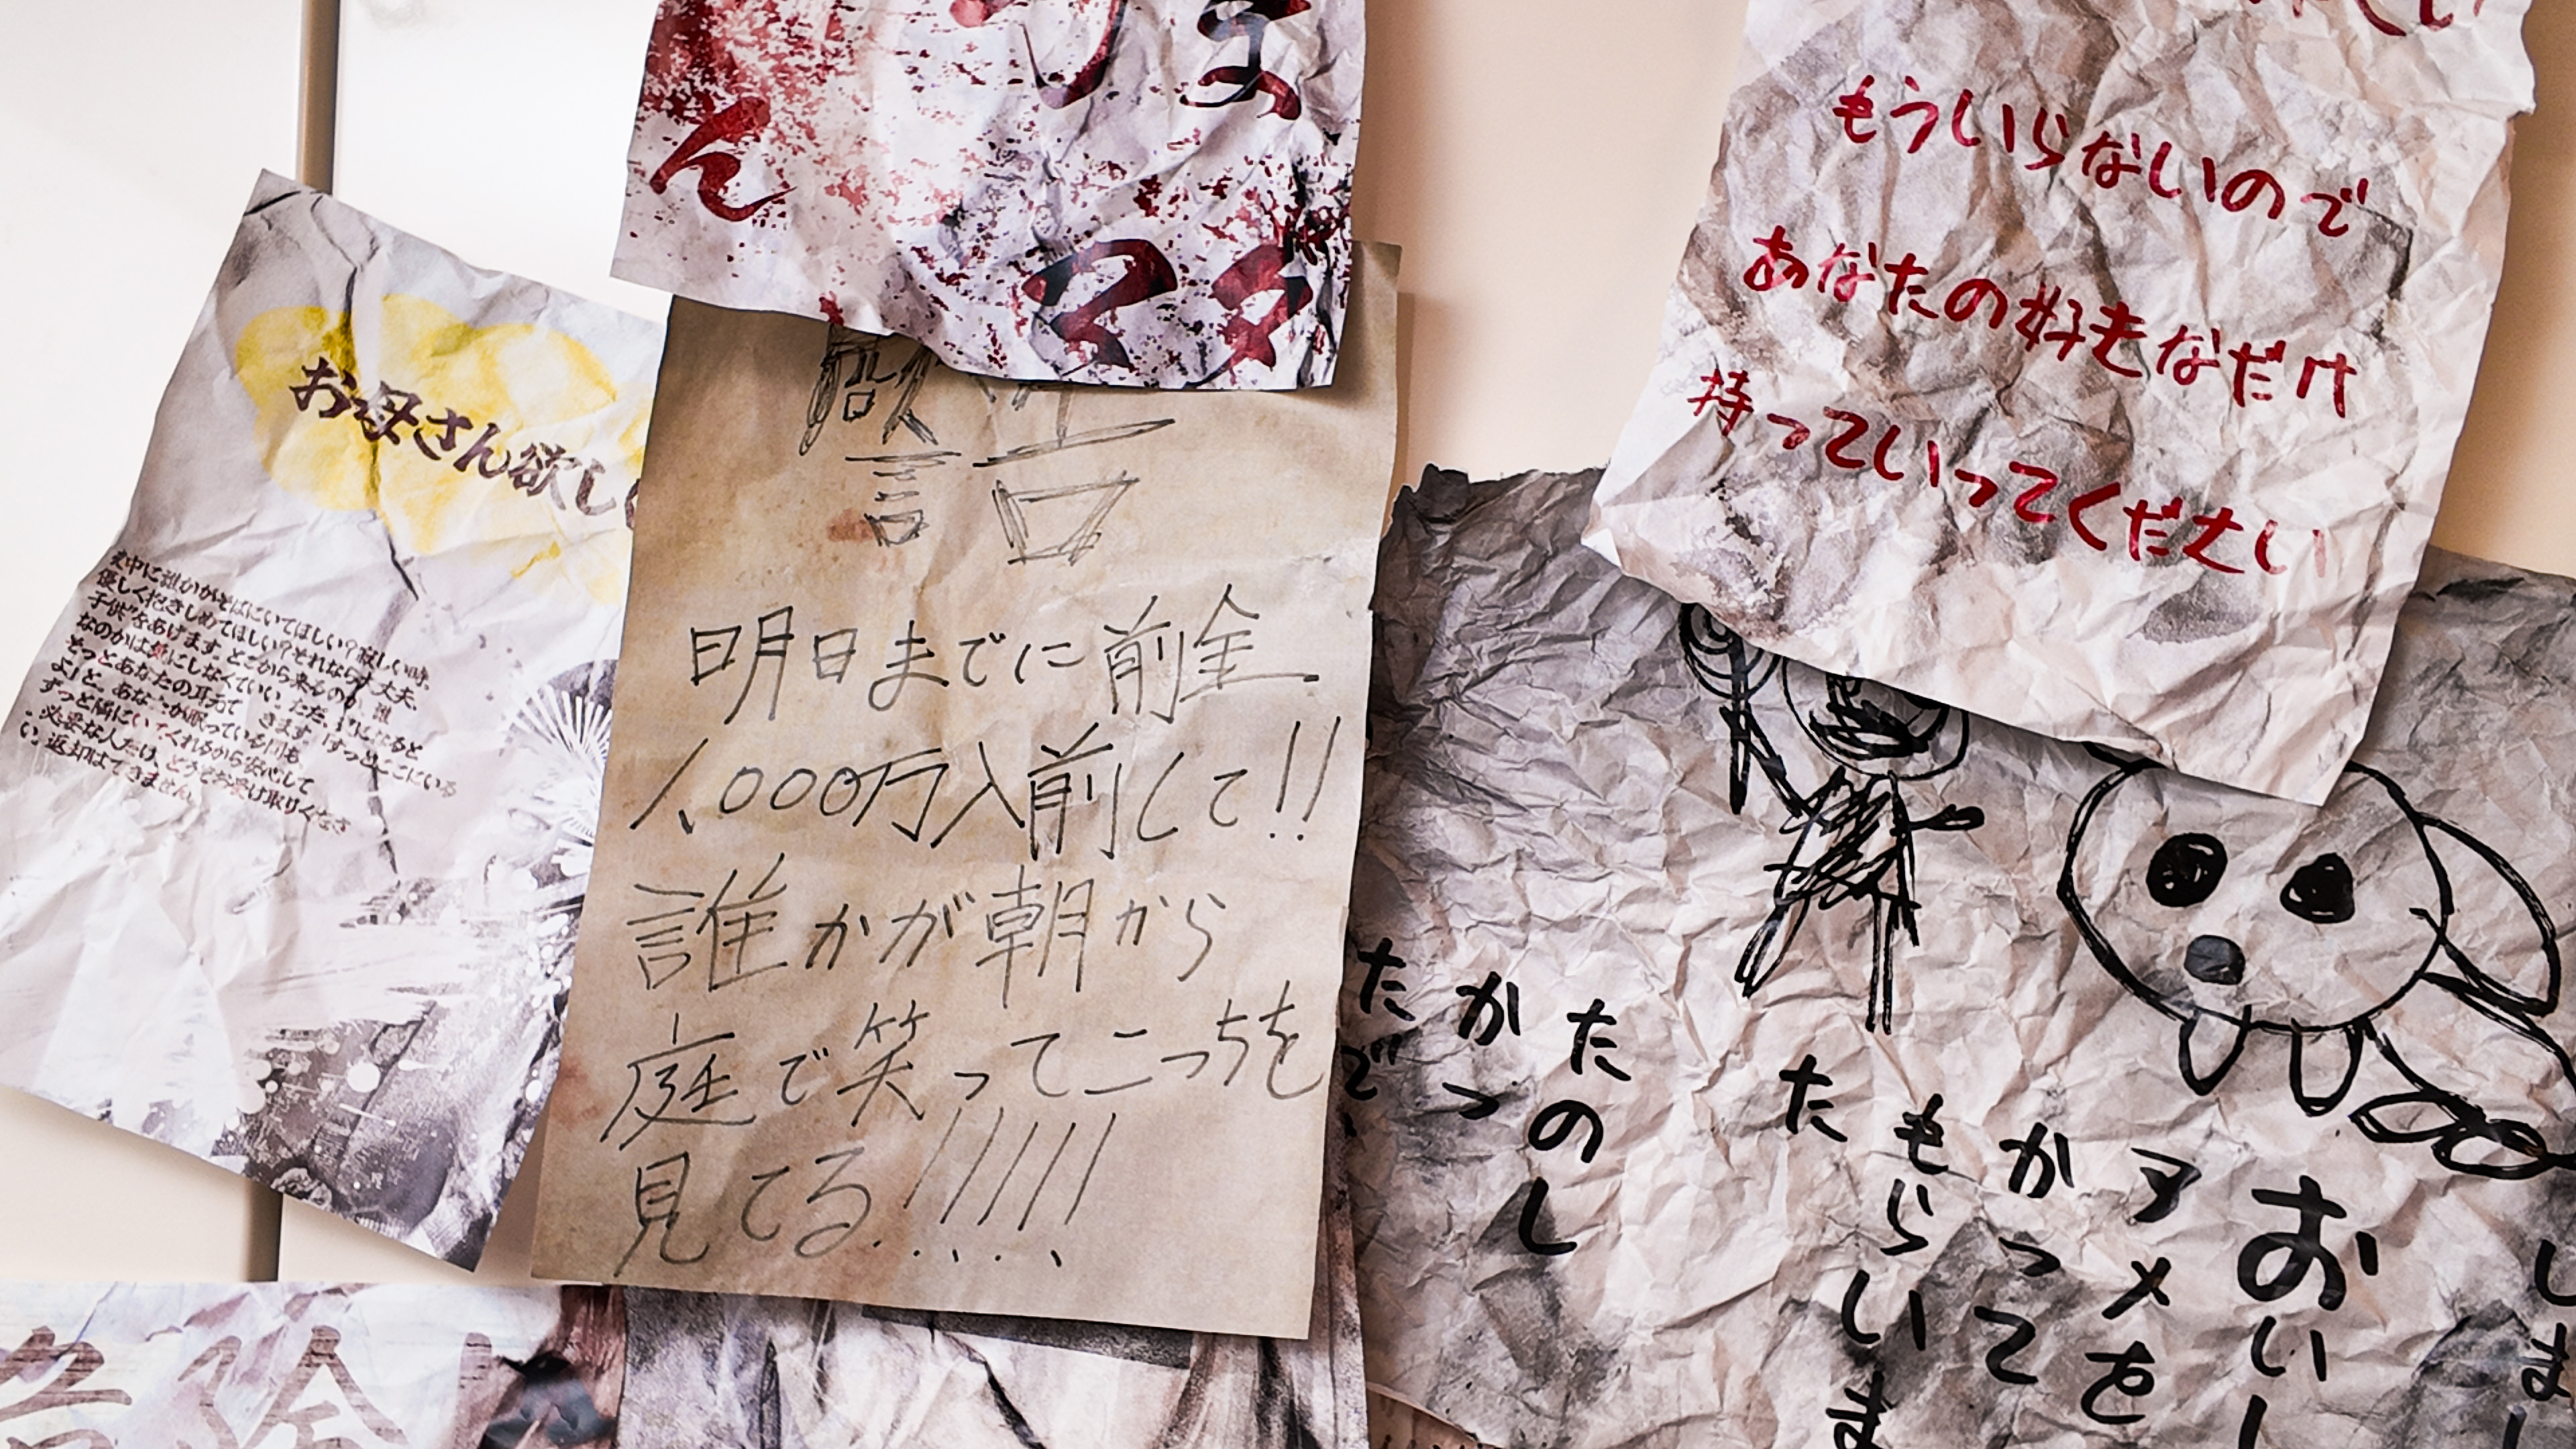 お母さん欲し
夜中に誰かがそばにいてほしい?寂しい時、
優しく抱きしめてほしい?それなら大丈夫、
子供"をあげます。どこから来るのか、誰
なのかは気にしなくていい。ただ、
そっとあなたの耳元で
よ」と。あなたが眠っている間も、
ずっと隣にいてくれるから安心して
。必要な人だけ、どうぞお受け取りくださ
い。返却はできません。
ま
ん
警告
明日までに前金
1,000万入前して!!
誰かが朝から
庭で笑ってこっちを
見てる!!!!!
もういらないので
あなたの好きなだけ
持っていってください
おいし
アメを
かって
もらいま
た
たのし
かっ
たで
しまし